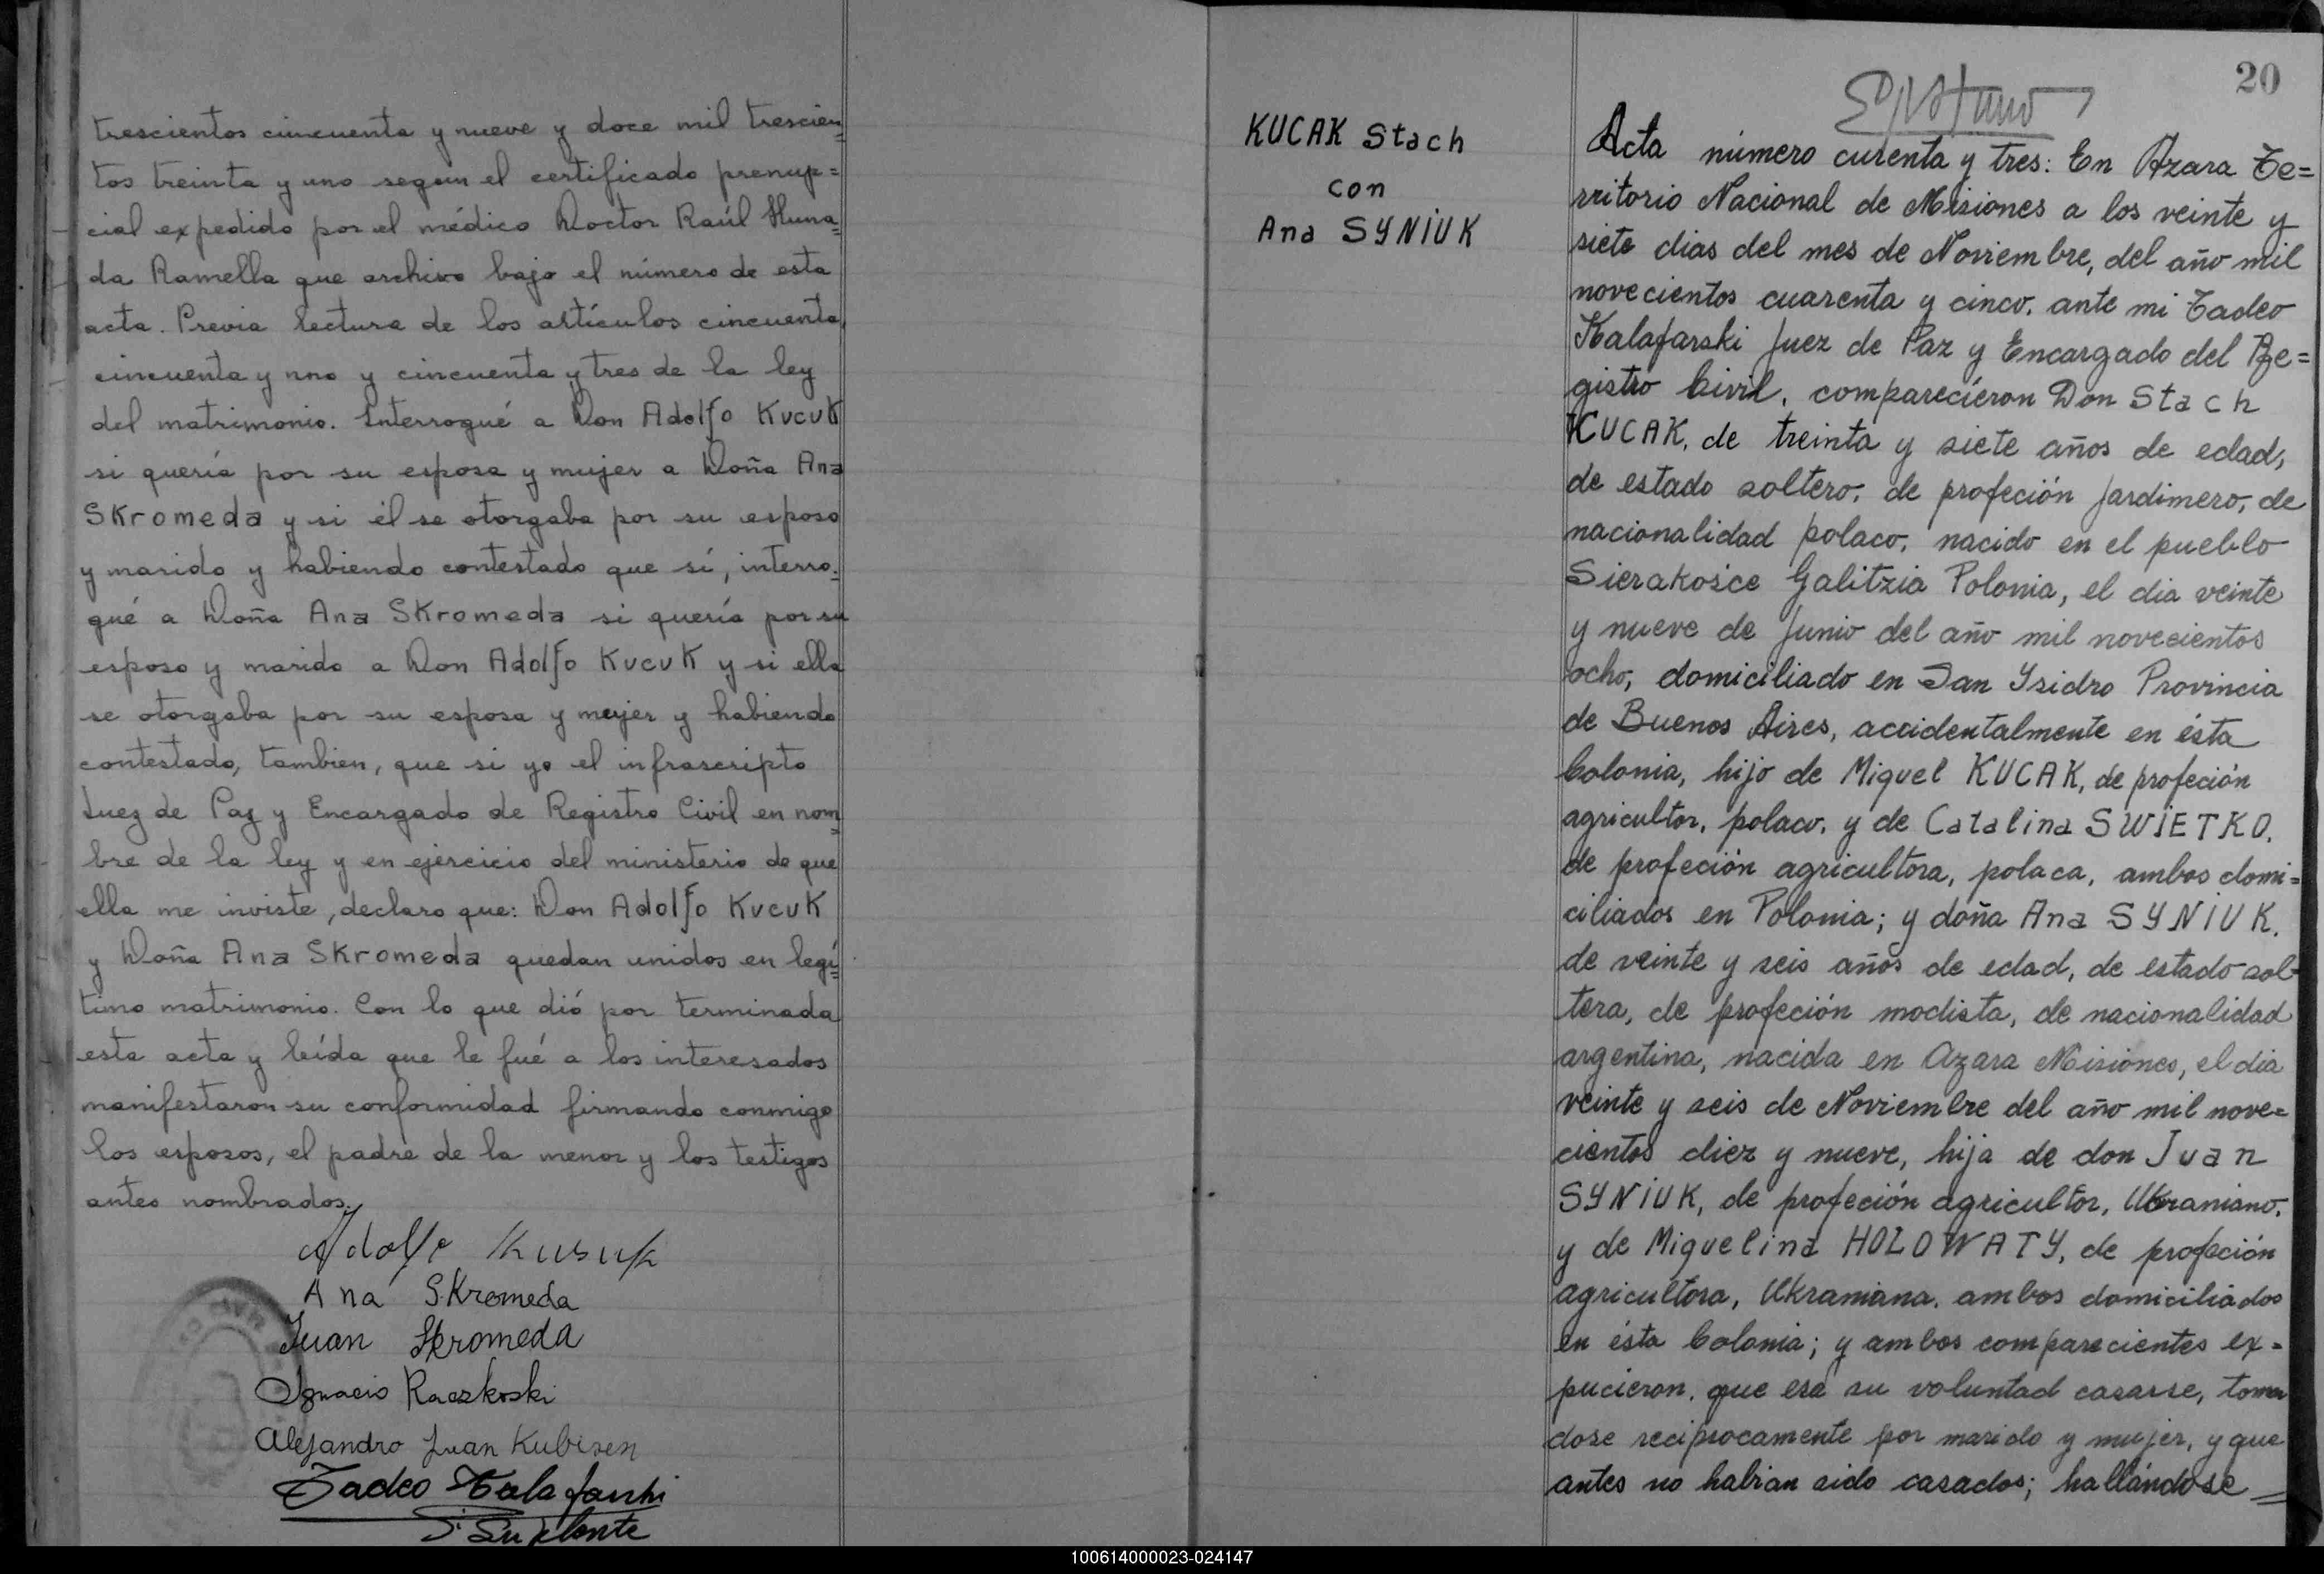 trescientos cincuenta y nueve y doce mil trescien=
tos treinta y uno segun el certificado prenup=
cial expedido por el médico Doctor Raúl Huna=
da Ramella que archivo bajo el número de esta
acta. Previa lectura de los artículos cincuenta,
cincuenta y uno y cincuenta y tres de la ley
del matrimonio. Interrogué a Don Adolfo KUCUK
si quería por su esposa y mujer a Doña Ana
SKromeda y si él se otorgaba por su esposo
y marido y habiendo contestado que sí, interro=
gué a Doña Ana SKromeda si quería por su
esposo y marido a Don Adolfo KUCUK y si ella
se otorgaba por su esposa y mujer y habiendo
contestado, tambien, que si yo el infrascripto
Juez de Paz y Encargado de Registro Civil en nom=
bre de la ley y en ejercicio del ministerio de que
ella me inviste, declaro que: Don Adolfo KUCUK
y Doña Ana SKromeda quedan unidos en legí=
timo matrimonio. Con lo que dió por terminada
esta acta y leída que le fué a los interesados
manifestaron su conformidad firmando conmigo
los esposos, el padre de la menor y los testigos
antes nombrados.
Adolfo Kusuk
Ana SKromeda
Juan Skromeda
Ignacio Raczkoski
Alejandro Juan Kubisen
Tadeo Kalafarski
Suplente
20
KUCAK Stach
con
Ana SYNIUK
Acta número curenta y tres: En Azara Te=
rritorio Nacional de Misiones a los veinte y
siete dias del mes de Noviembre, del año mil
novecientos cuarenta y cinco, ante mi Tadeo
Kalafarski Juez de Paz y Encargado del Re=
gistro Civil, comparecíeron Don Stach
KUCAK, de treinta y siete años de edad,
de estado soltero, de profeción Jardimero, de
nacionalidad polaco, nacido en el pueblo
Sierakośce Galitzia Polonia, el dia veinte
y nueve de Junio del año mil novecientos
ocho, domiciliado en San Ysidro Provincia
de Buenos Aires, accidentalmente en ésta
Colonia, hijo de Miguel KUCAK, de profeción
agricultor, polaco, y de Catalina SWIETKO,
de profeción agricultora, polaca, ambos domi=
ciliados en Polonia; y doña Ana SYNIUK,
de veinte y seis años de edad, de estado sol=
tera, de profeción modista, de nacionalidad
argentina, nacida en Azara Misiones, el dia
veinte y seis de Noviembre del año mil nove=
cientos diez y nueve, hija de don Juan
SYNIUK, de profeción agricultor, Ukraniano,
y de Miguelina HOLOWATY, de profeción
agricultora, Ukraniana, ambos domiciliados
en ésta Colonia; y ambos comparecientes ex=
pucieron, que era su voluntad casarse, toman
dose reciprocamente por marido y mujer, y que
antes no habian sido casados; hallándose
100614000023-024147